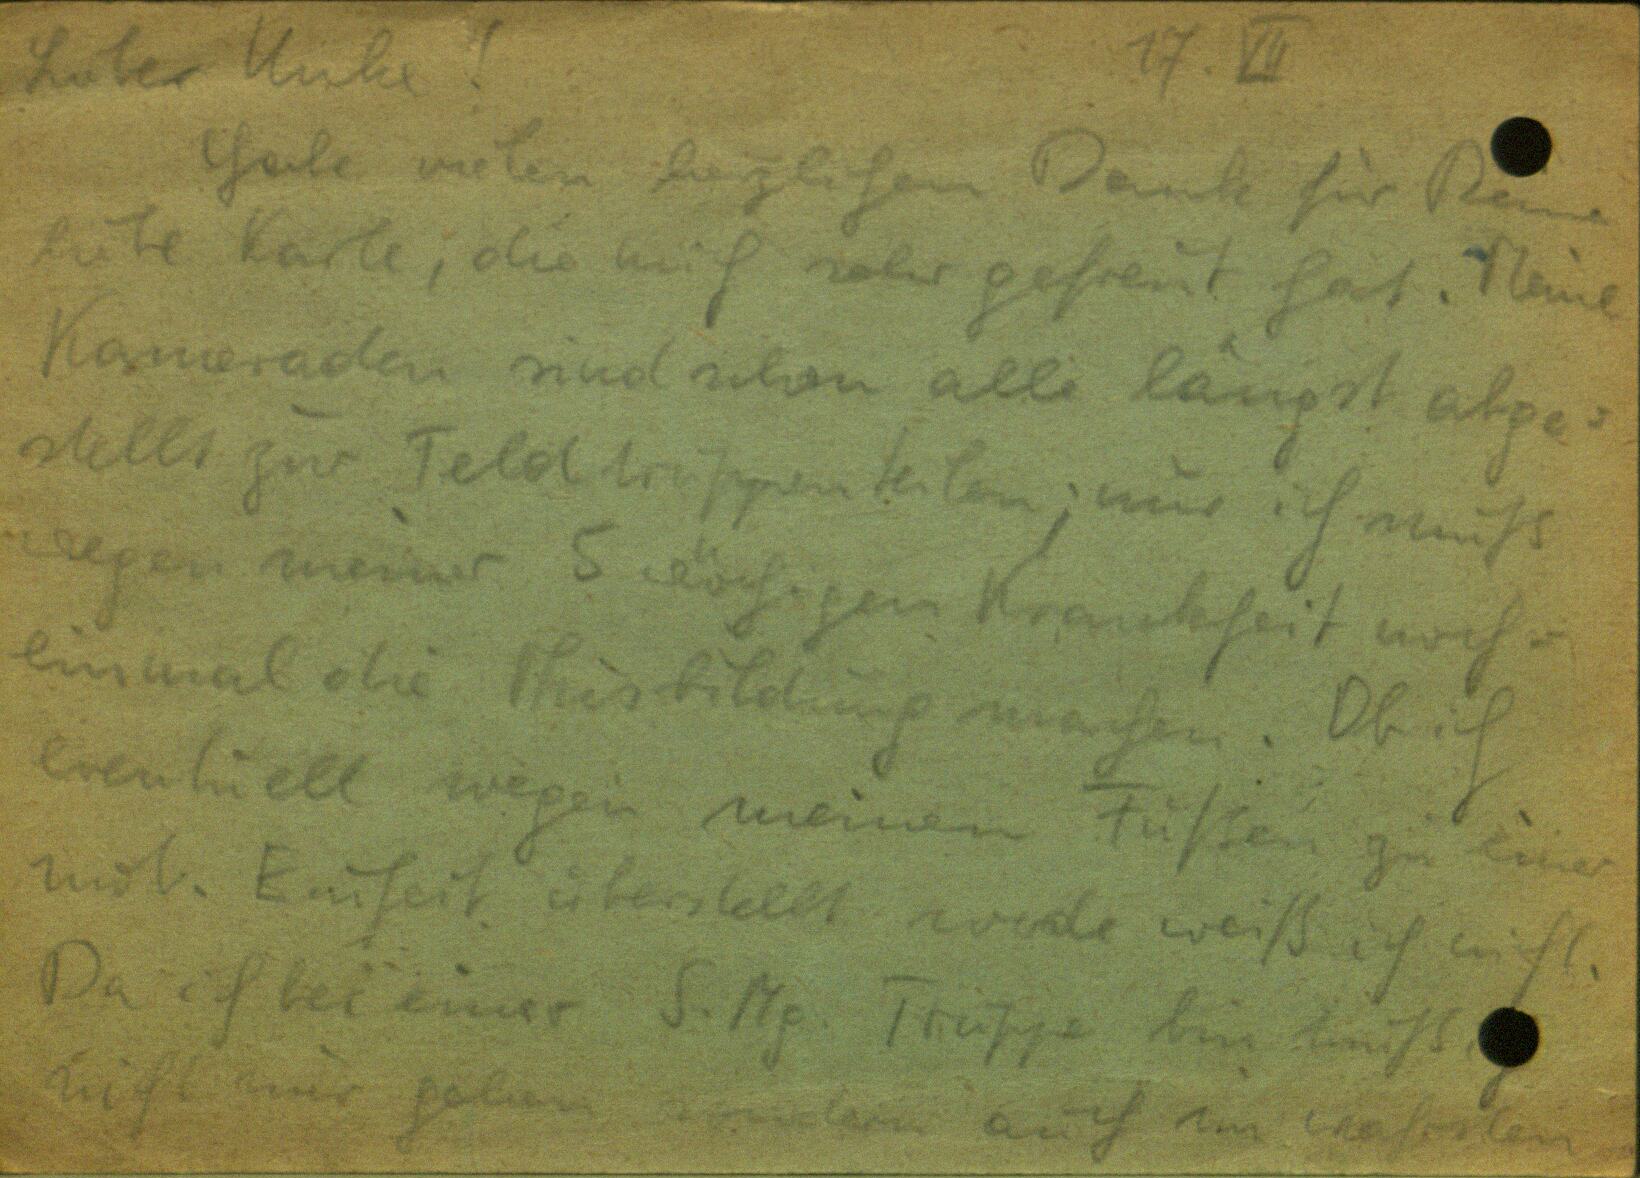 Lieber Unke! 17. VII
Habe vielen herzlichen Dank für Deine
liebe Karte, die mich sehr gefreut hat. Meine
Kameraden sind schon alle längst abge=
stellt zur Feldtruppenteilen; nur ich muß
wegen meiner 5 wöchigen Krankheit noch=
einmal die Ausbildung machen. Ob ich
eventuell wegen meinen Füßen zu einer
mot. Einheit überstellt werde weiß ich nicht.
Da ich bei einer S.Mg. Truppe bin muß
nicht nur gehen sondern auch im wahrsten